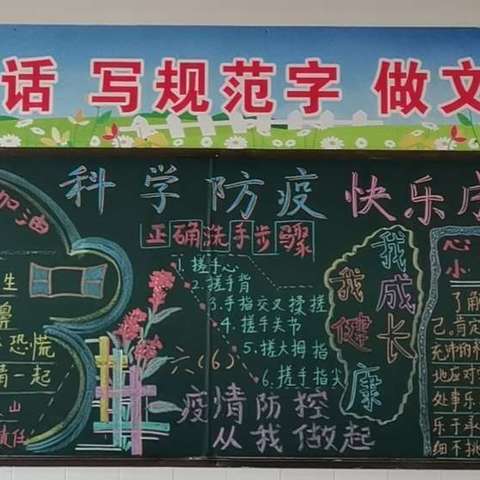 话 写规范字 做文
科学防疫 快乐
加油
正确洗手步骤
1.搓手心
2.搓手背
3.手指交叉揉搓
4.搓手关节
5.搓大拇指
6.搓手指尖
六(6)
疫情防控
从我做起
我健康
我成长
生
恐慌
一起
山
责任
心
小
了解
己.肯定
充沛的
地应对
处事乐
乐于承
细不挑